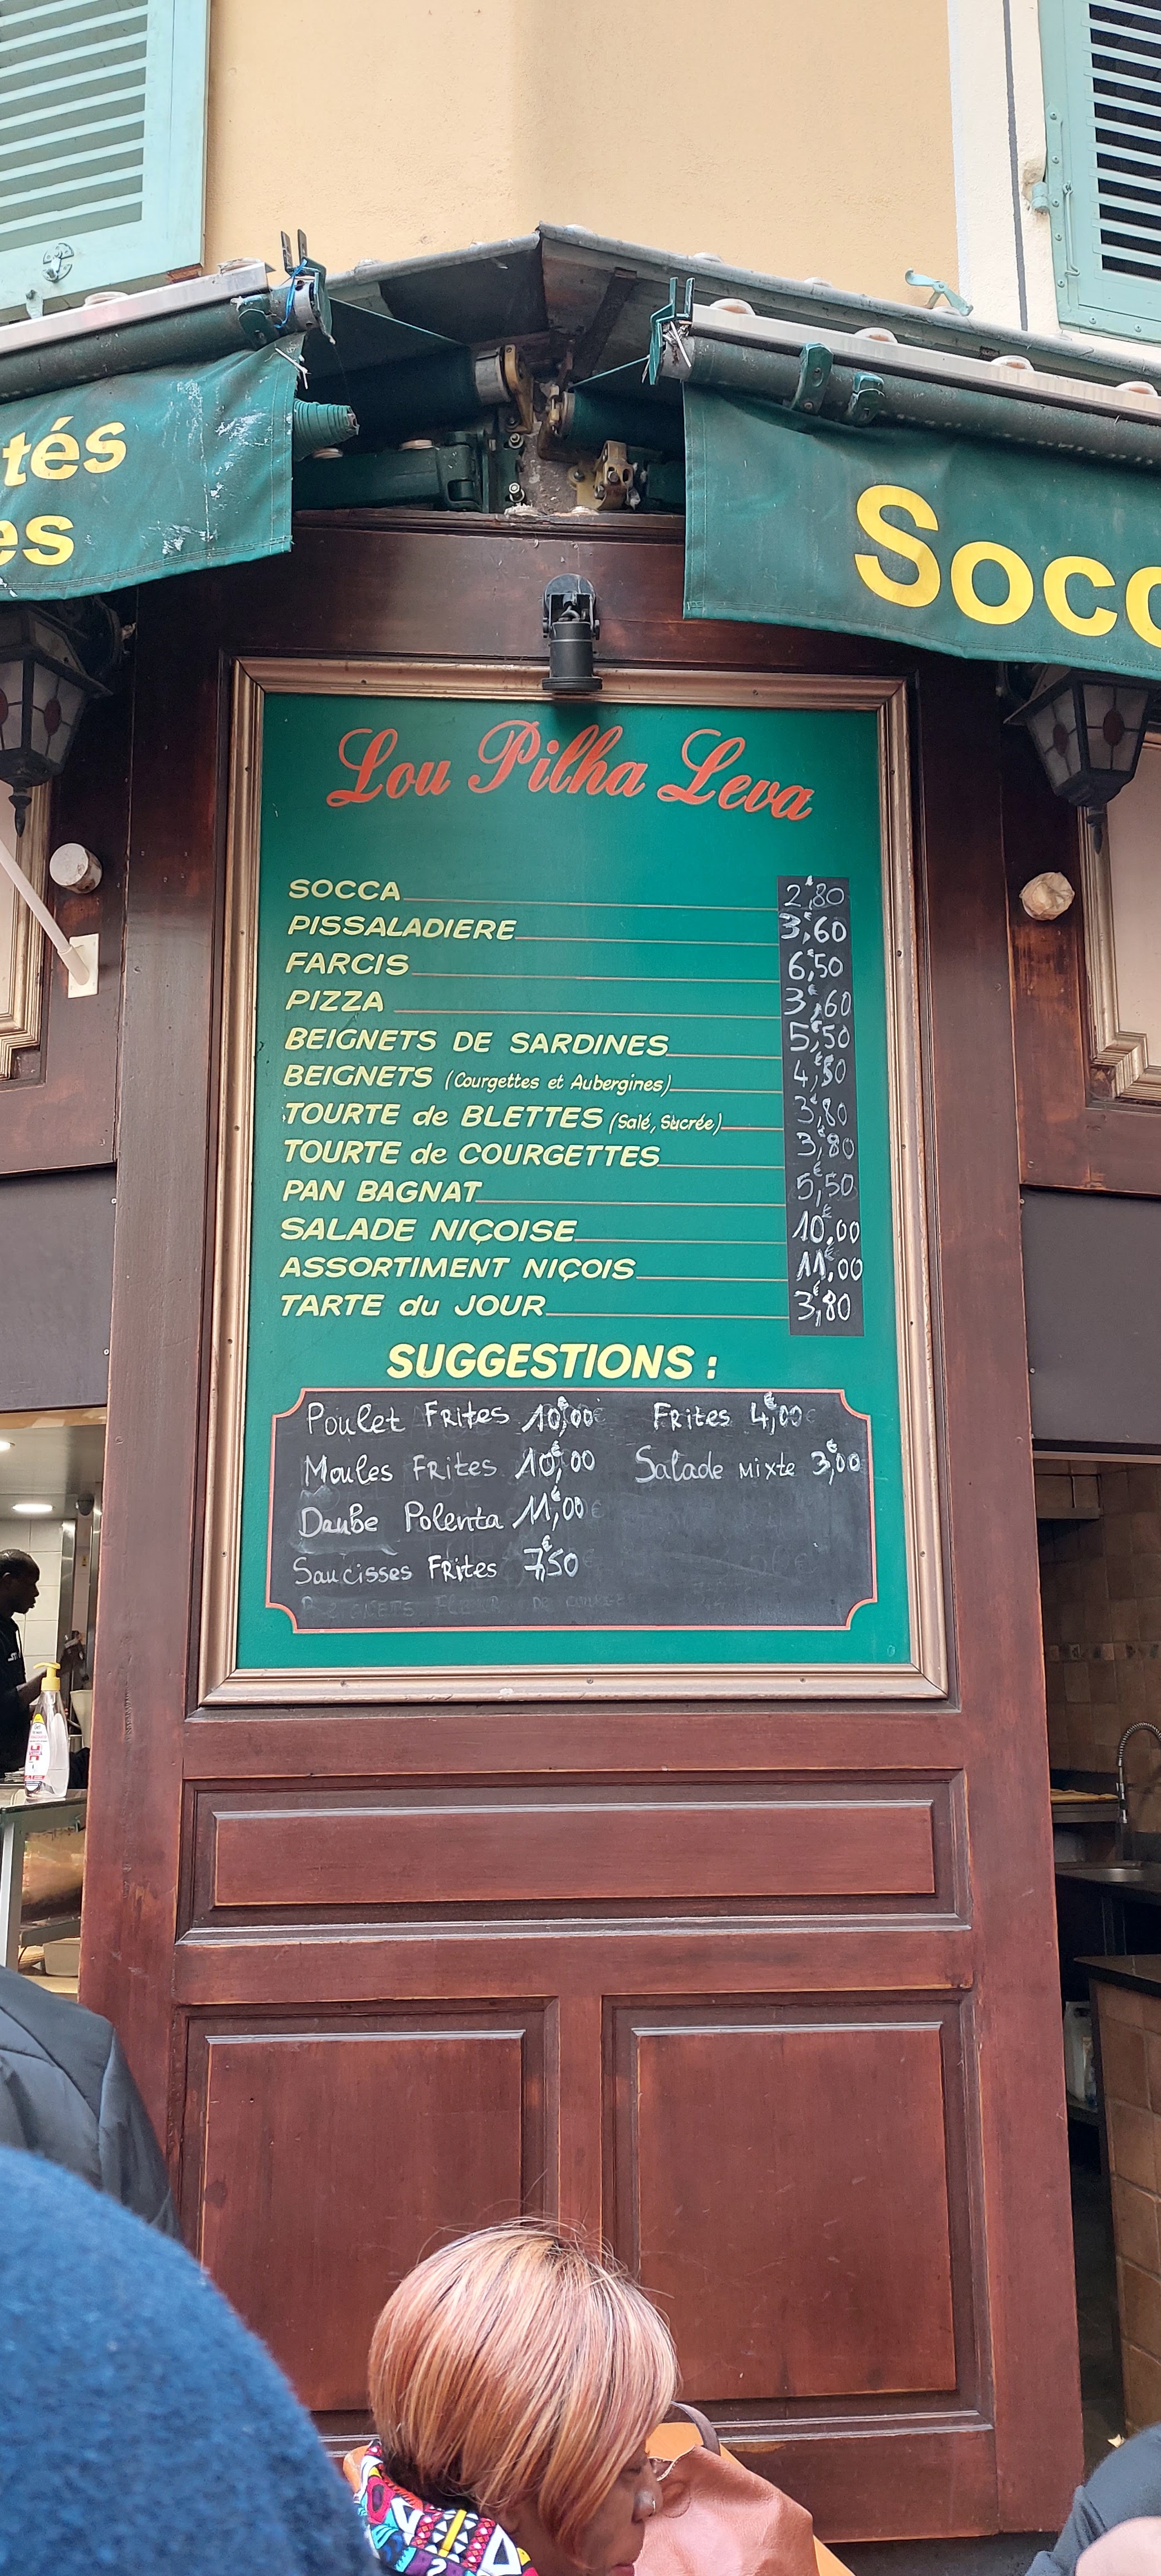 tés
es
Socc
Lou Pilha Leva
SOCCA 2,80
PISSALADIERE 3,€60
FARCIS 6,€50
PIZZA 3,€60
BEIGNETS DE SARDINES 5,€50
BEIGNETS (Courgettes et Aubergines) 4,€50
TOURTE de BLETTES (Salé, Sucrée) 3,€80
TOURTE de COURGETTES 3,€80
PAN BAGNAT 5,€50
SALADE NIÇOISE 10,€00
ASSORTIMENT NIÇOIS 11,€00
TARTE du JOUR 3,€80
SUGGESTIONS :
Poulet Frites 10,€00 Frites 4,€00
Moules Frites 10,€00 Salade mixte 3,€00
Daube Polenta 11,€00
Saucisses Frites 7,€50